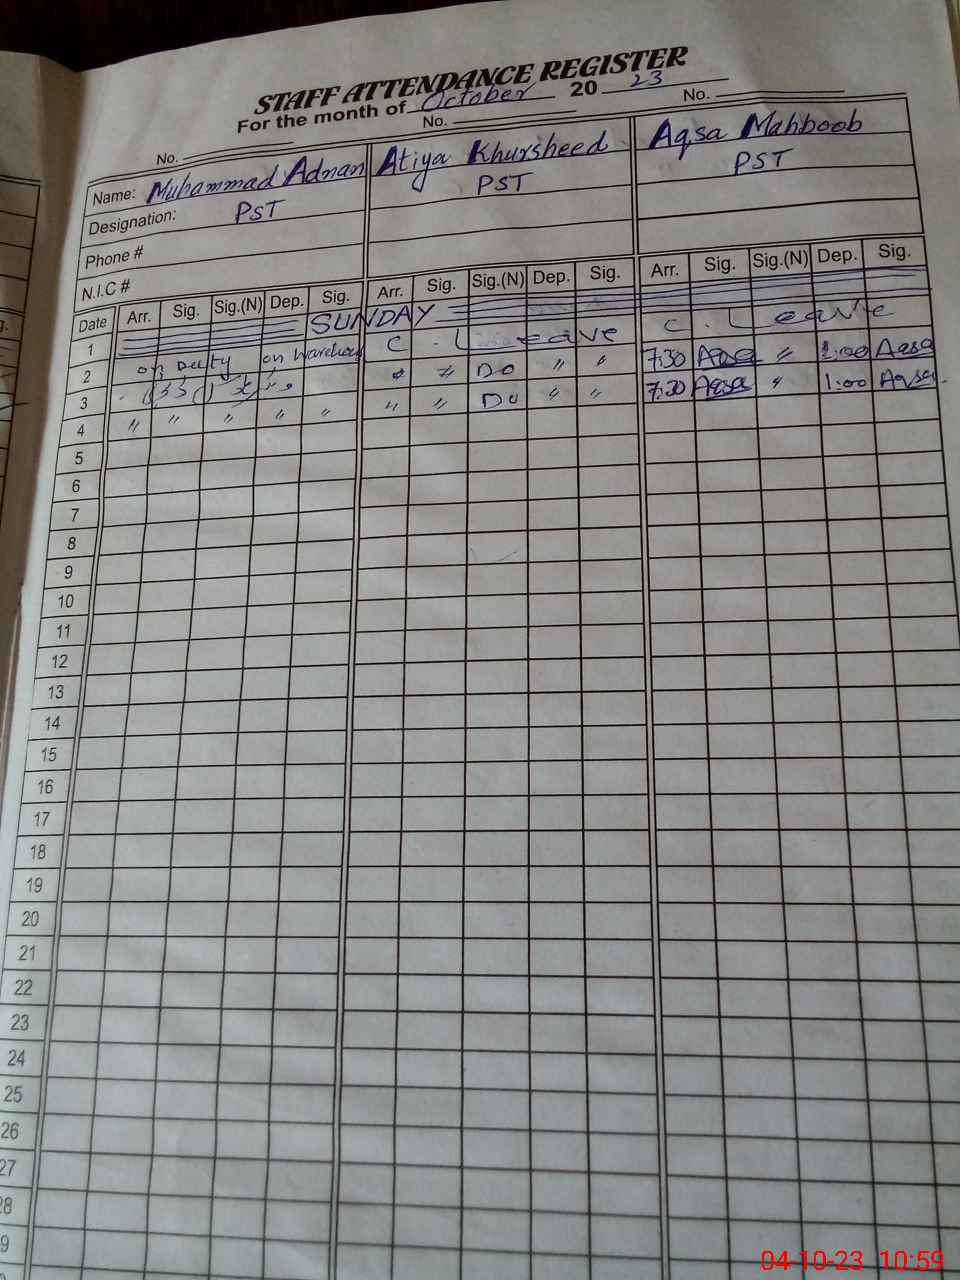 STAFF ATTENDANCE REGISTER
For the month of October 20 23
No. No. No.
Name: Muhammad Adnan Atiya Khursheed Aqsa Mahboob
Designation: PST PST PST
Phone #
N.I.C #
Date Arr. Sig. Sig.(N) Dep. Sig. Arr. Sig. Sig.(N) Dep. Sig. Arr. Sig. Sig.(N) Dep. Sig.
1 SUNDAY
2 on Duty on C . Leave C . Leave
3 " " Do " " 7:30 Aqsa " 1:00 Aqsa
4 " " " " " " " Do " " 7:30 Aqsa " 1:00 Aqsa
5
6
7
8
9
10
11
12
13
14
15
16
17
18
19
20
21
22
23
24
25
26
27
28
9
04-10-23 10:59